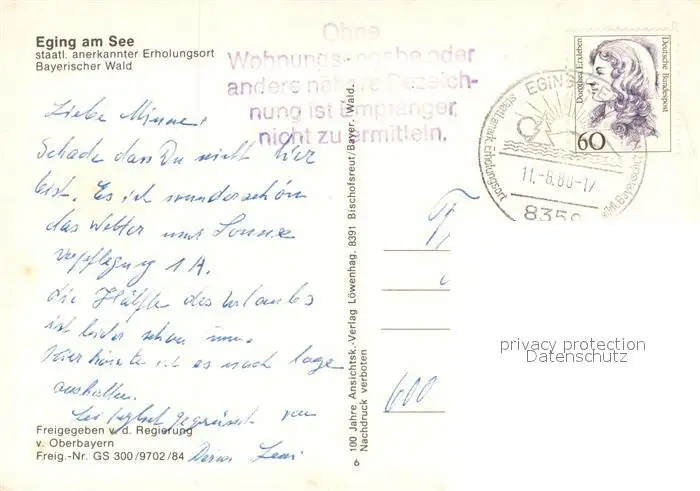 Eging am See
staatl. anerkannter Erholungsort
Bayerischer Wald
Ohne
Wohnungsangabe oder
andere nähere Bezeich-
nung ist Empfänger
nicht zu ermitteln.
Dorothea Erxleben
Deutsche Bundespost
60
EGING
staatl. anerk. Erholungsort
8359
Liebe Minna,
Schade dass Du nicht hier
bist. Es ist wunderschön
das Wetter nur Sonne
Verpflegung 1A.
die Hälfte des Urlaubs
ist leider schon
hier könnte ich es noch lage
aushalten.
Sei herzlich gegrüsst von
Deiner Leni
600
Freigegeben v. d. Regierung
v. Oberbayern
Freig.-Nr. GS 300/9702/84
100 Jahre Ansichtsk.-Verlag Löwenhag. 8391 Bischofsreut/Bayer. Wald.
Nachdruck verboten
6
privacy protection
Datenschutz